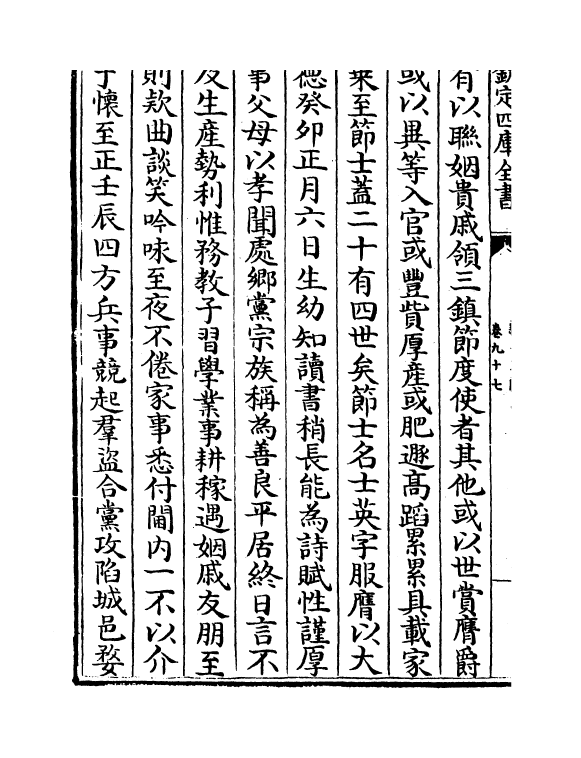 欽定四庫全書
卷九十七
有以聯姻貴戚領三鎮節度使者其他或以世賞膺爵
或以異等入官或豐貲厚產或肥遯高蹈累累具載家
乗至節士蓋二十有四世矣節士名士英字服膺以大
德癸卯正月六日生幼知讀書稍長能為詩賦性謹厚
事父母以孝聞處鄉黨宗族稱為善良平居終日言不
及生產勢利惟務教子習學業事耕稼遇姻戚友朋至
則欵曲談笑吟咏至夜不倦家事悉付閫内一不以介
于懐至正壬辰四方兵事競起羣盜合黨攻陷城邑婺